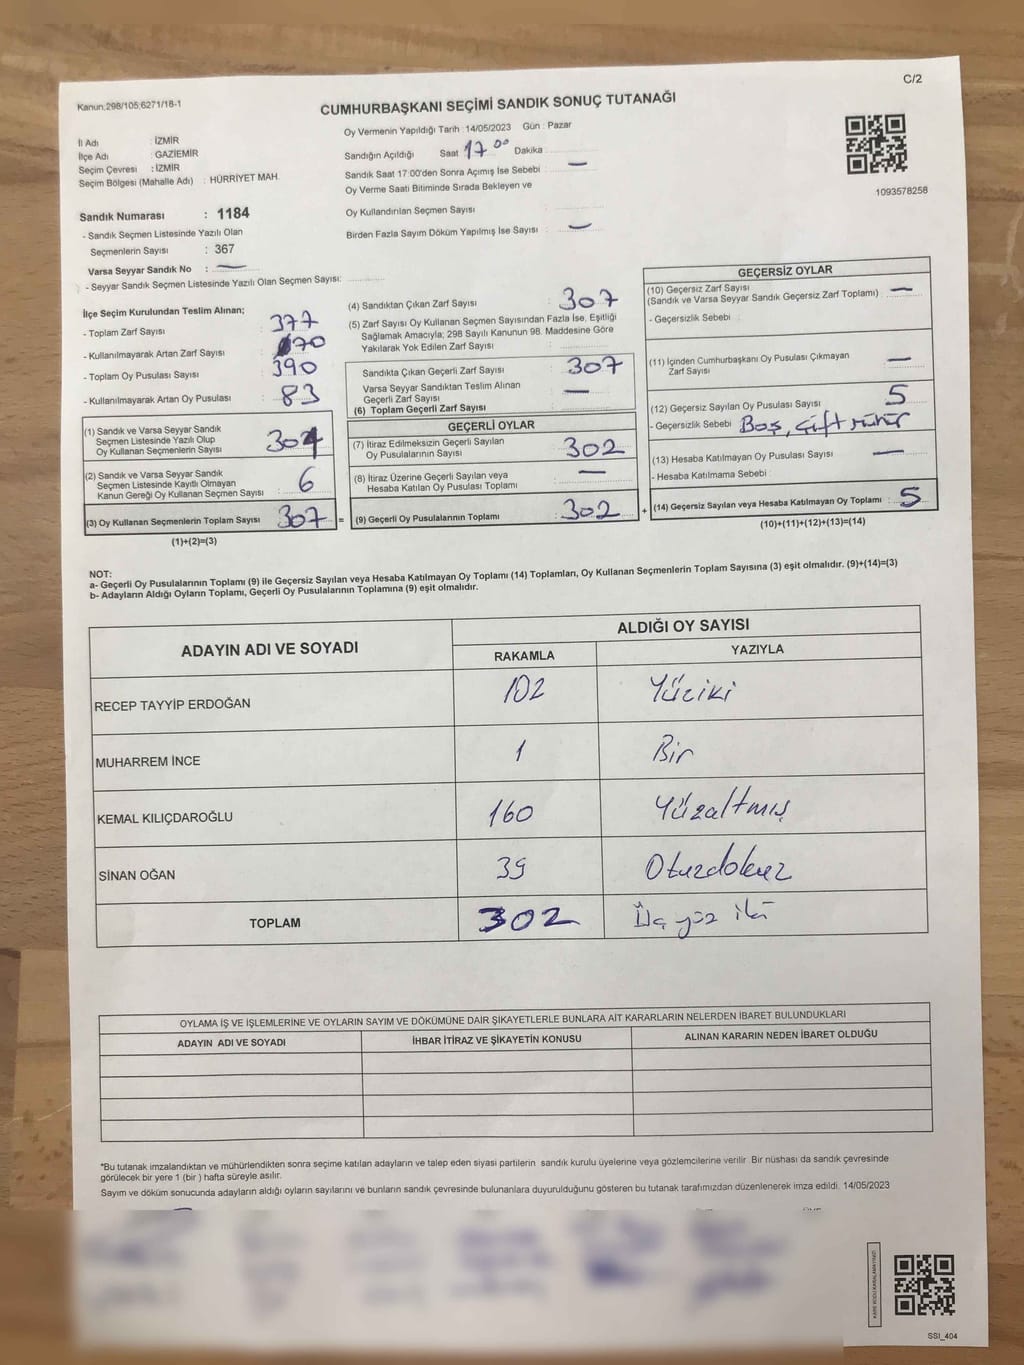 C/2
Kanun:298/105;6271/18-1
CUMHURBAŞKANI SEÇİMİ SANDIK SONUÇ TUTANAĞI
İl Adı : İZMİR
İlçe Adı : GAZİEMİR
Seçim Çevresi : İZMİR
Seçim Bölgesi (Mahalle Adı) : HÜRRİYET MAH.
Oy Vermenin Yapıldığı Tarih :14/05/2023 Gün : Pazar
Sandığın Açıldığı Saat 17 00 Dakika
Sandık Saat 17:00'den Sonra Açımış İse Sebebi : —
Oy Verme Saati Bitiminde Sırada Bekleyen ve
Oy Kullandırılan Seçmen Sayısı
Birden Fazla Sayım Döküm Yapılmış İse Sayısı : —
1093578258
Sandık Numarası : 1184
- Sandık Seçmen Listesinde Yazılı Olan
Seçmenlerin Sayısı : 367
Varsa Seyyar Sandık No : —
- Seyyar Sandık Seçmen Listesinde Yazılı Olan Seçmen Sayısı:
İlçe Seçim Kurulundan Teslim Alınan;
- Toplam Zarf Sayısı : 377
- Kullanılmayarak Artan Zarf Sayısı : 70
- Toplam Oy Pusulası Sayısı : 390
- Kullanılmayarak Artan Oy Pusulası : 83
(1) Sandık ve Varsa Seyyar Sandık
Seçmen Listesinde Yazılı Olup
Oy Kullanan Seçmenlerin Sayısı
(2) Sandık ve Varsa Seyyar Sandık
Seçmen Listesinde Kayıtlı Olmayan
Kanun Gereği Oy Kullanan Seçmen Sayısı : 6
(3) Oy Kullanan Seçmenlerin Toplam Sayısı 307 =
(1)+(2)=(3)
(4) Sandıktan Çıkan Zarf Sayısı : 307
(5) Zarf Sayısı Oy Kullanan Seçmen Sayısından Fazla İse, Eşitliği
Sağlamak Amacıyla; 298 Sayılı Kanunun 98. Maddesine Göre
Yakılarak Yok Edilen Zarf Sayısı
Sandıkta Çıkan Geçerli Zarf Sayısı : 307
Varsa Seyyar Sandıktan Teslim Alınan
Geçerli Zarf Sayısı : —
(6) Toplam Geçerli Zarf Sayısı
GEÇERLİ OYLAR
(7) İtiraz Edilmeksizin Geçerli Sayılan
Oy Pusulalarının Sayısı : 302
(8) İtiraz Üzerine Geçerli Sayılan veya
Hesaba Katılan Oy Pusulası Toplamı : —
(9) Geçerli Oy Pusulalarının Toplamı : 302 +
GEÇERSİZ OYLAR
(10) Geçersiz Zarf Sayısı
(Sandık ve Varsa Seyyar Sandık Geçersiz Zarf Toplamı) : —
- Geçersizlik Sebebi :
(11) İçinden Cumhurbaşkanı Oy Pusulası Çıkmayan
Zarf Sayısı : —
(12) Geçersiz Sayılan Oy Pusulası Sayısı : 5
- Geçersizlik Sebebi : Boş, çift mühür
(13) Hesaba Katılmayan Oy Pusulası Sayısı : —
- Hesaba Katılmama Sebebi :
(14) Geçersiz Sayılan veya Hesaba Katılmayan Oy Toplamı : 5
(10)+(11)+(12)+(13)=(14)
NOT:
a- Geçerli Oy Pusulalarının Toplamı (9) ile Geçersiz Sayılan veya Hesaba Katılmayan Oy Toplamı (14) Toplamları, Oy Kullanan Seçmenlerin Toplam Sayısına (3) eşit olmalıdır. (9)+(14)=(3)
b- Adayların Aldığı Oyların Toplamı, Geçerli Oy Pusulalarının Toplamına (9) eşit olmalıdır.
ADAYIN ADI VE SOYADI
ALDIĞI OY SAYISI
RAKAMLA YAZIYLA
RECEP TAYYİP ERDOĞAN 102 Yüziki
MUHARREM İNCE 1 Bir
KEMAL KILIÇDAROĞLU 160 Yüzaltmış
SİNAN OĞAN 39 Otuzdokuz
TOPLAM 302 Üç yüz iki
OYLAMA İŞ VE İŞLEMLERİNE VE OYLARIN SAYIM VE DÖKÜMÜNE DAİR ŞİKAYETLERLE BUNLARA AİT KARARLARIN NELERDEN İBARET BULUNDUKLARI
ADAYIN ADI VE SOYADI İHBAR İTİRAZ VE ŞİKAYETİN KONUSU ALINAN KARARIN NEDEN İBARET OLDUĞU
*Bu tutanak imzalandıktan ve mühürlendikten sonra seçime katılan adayların ve talep eden siyasi partilerin sandık kurulu üyelerine veya gözlemcilerine verilir. Bir nüshası da sandık çevresinde
görülecek bir yere 1 (bir ) hafta süreyle asılır.
Sayım ve döküm sonucunda adayların aldığı oyların sayılarını ve bunların sandık çevresinde bulunanlara duyurulduğunu gösteren bu tutanak tarafımızdan düzenlenerek imza edildi. 14/05/2023
SSI_404